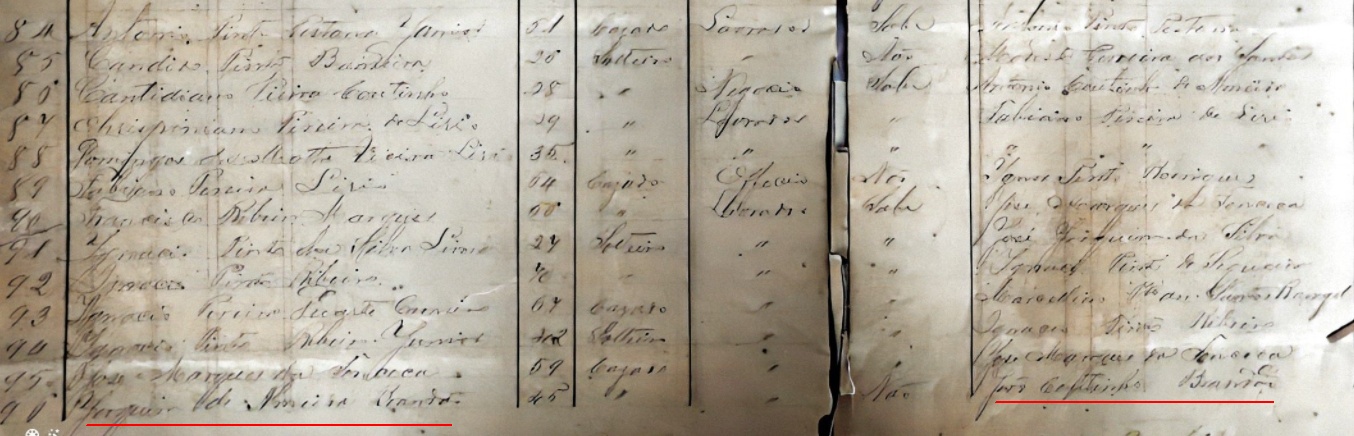 84 Antonio Pinto Pestana Junior 51 Cazado Lavrador Sabe Antonio Pinto Pestana
85 Candido Pinto Bandeira 20 Solteiro " Não Ferreira dos Santos
86 Cantidiano Vieira Coutinho 28 " Negocio Sabe Antonio Coutinho de
87 Chrispiniano Pereira de Lirio 29 " Lavrador " Fabiano Pereira de Lirio
88 Domingos da Motta Vieira Lirio 35 " " " " "
89 Fabiano Pereira Lirio 64 Cazado Officio Não Ignacio Pinto
90 Francisco Ribeiro Marques 50 " Lavrador Sabe José Marques da Fonseca
91 Ignacio Pinto da Silva 27 Solteiro " " José da Silva
92 Ignacio Pinto Ribeiro " " " Pinto de Siqueira
93 Ignacio Pereira Duarte 67 Cazado " " Marcellino Rangel
94 Ignacio Pinto Ribeiro Junior 42 Solteiro " " Ignacio Pinto Ribeiro
95 José Marques da Fonseca 59 Cazado " " José Marques da Fonseca
96 de Almeida Brandão 45 " " Não José Coutinho Brandão